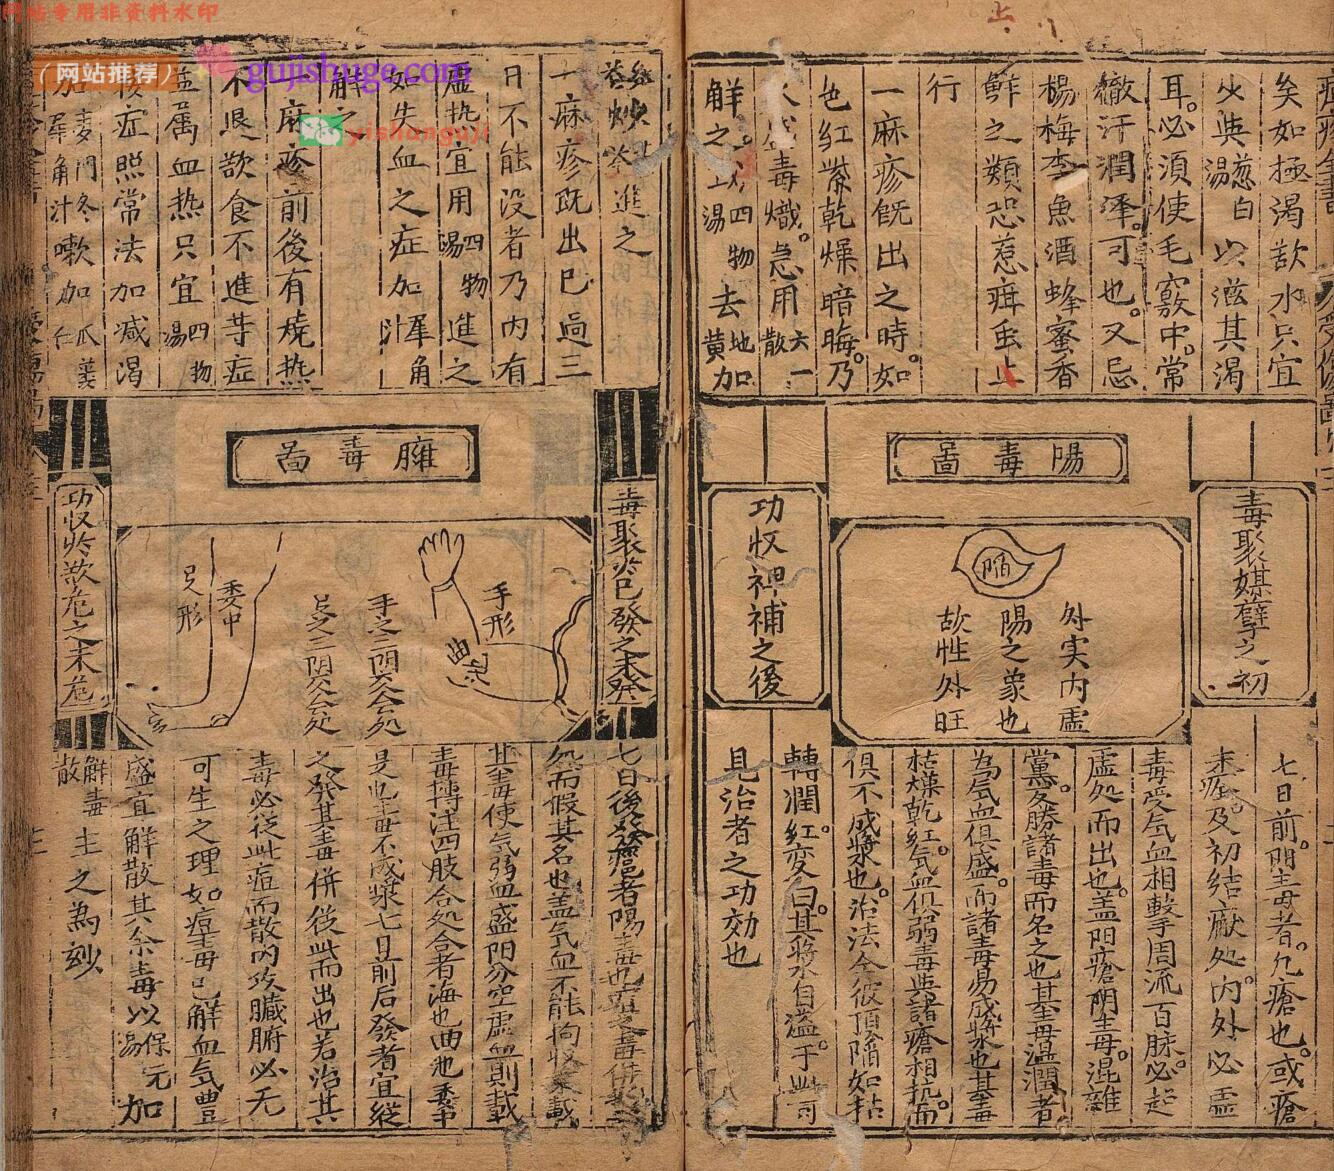 网站专用非资料水印
（网站推荐）
gujishuge.com
yishonguji
矣如極渴歆水只宜
火與葱白湯以滋其渴
耳必須使毛竅中常
徹汗潤澤可也又忌
楊梅李魚酒蜂蜜香
鮮之類恐惹疳虫上
行
一麻疹既出之時如
色紅紫乾燥暗晦乃
火盛毒熾急用六一散
解之四物湯去地黄加
炒進之
一麻疹既出已過三
日不能没者乃内有
虚热宜用四物湯進之
如失血之症加犀角汁
解之
一麻疹前後有燒热
不退歆食不進等症
並属血热只宜四物湯
後症照常法加减渴
加麦門冬犀角汁嗽加瓜蔞仁
陽毒啚
毒聚媒孽之初
功收神補之後
陷
外实内虚
陽之象也
故性外旺
七日前阴毒者凢瘡也或瘡
未痊及初结廠处内外必虚
毒受气血相擊周流百脉必起
虚处而出也盖阳瘡阴毒混雜
黨惡勝諸毒而名之也其毒温潤者
為气血俱盛而諸毒易成漿也其毒
枯燥乾紅气血俱弱毒與諸瘡相抗而
俱不成漿也治法令彼頂陷如粘
轉潤紅変白其漿自溢于此可
見治者之功効也
臃毒啚
毒聚於已發之未發
功收於欲危之未危
手形
曲池
手之三阴交会处
足之三阴交会处
委中
足形
七日後發瘡者陽毒也
然而假其名也盖气血不能拘收
其毒使气弱血盛阳分空虚血則載
毒摶注四肢合处合者海也曲池委中
是也毒不成漿七日前后發者宜縱
之發其毒併從此而出也若治其
毒必從此痘而散内攻臓腑必无
可生之理如痘毒已解血气豊
盛宜解散其余毒以保元湯加
解毒散主之為妙